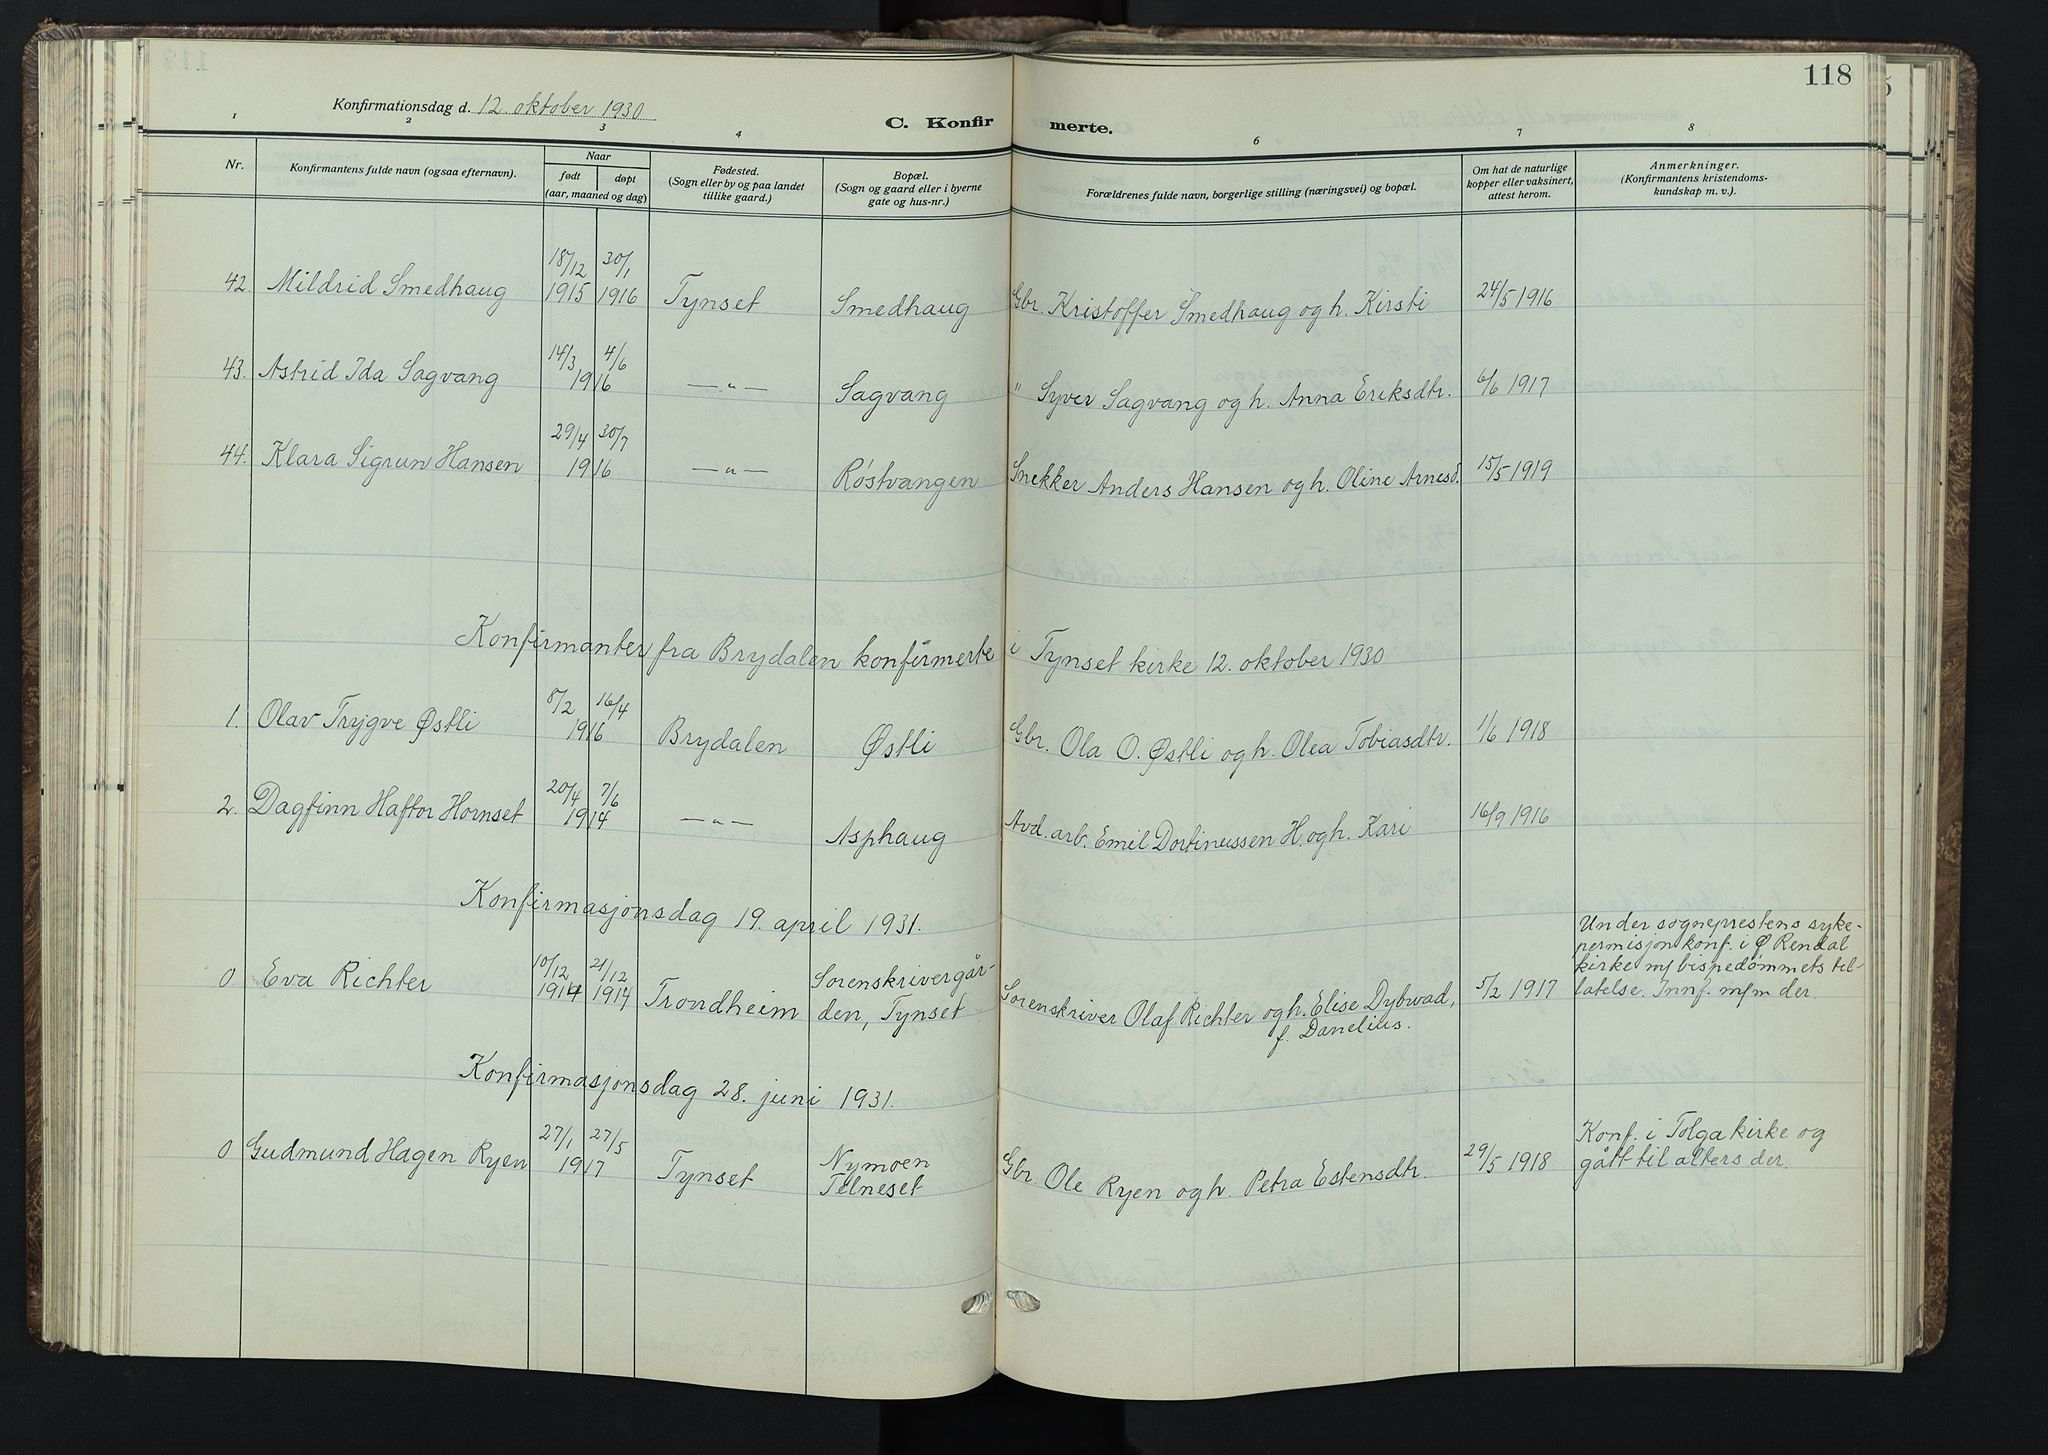 118
Konfirmationsdag d. 12. oktober 1930
C. Konfirmerte.
1 2 3 4 6 7 8
Nr.
Konfirmantens fulde navn (ogsaa efternavn).
Naar
født døpt
(aar, maaned og dag)
Fødested.
(Sogn eller by og paa landet
tillike gaard.)
Bopæl.
(Sogn og gaard eller i byerne
gate og hus-nr.)
Forældrenes fulde navn, borgerlige stilling (næringsvei) og bopæl.
Om hat de naturlige
kopper eller vaksinert,
attest herom.
Anmerkninger.
(Konfirmantens kristendoms-
kundskap m. v.)
18/12 30/1
42. Mildrid Smedhaug 1915 1916 Tynset Smedhaug Gbr. Kristoffer Smedhaug og h. Kirsti 24/5 1916
14/3 4/6
43. Astrid Ida Sagvang 1916 —„— Sagvang " Syver Sagvang og h. Anna Eriksdtr. 6/6 1917
29/4 30/7
44. Klara Sigrun Hansen 1916 —„— Røstvangen Snekker Anders Hansen og h. Oline Arnesd. 15/5 1919
Konfirmanter fra Brydalen konfirmerte i Tynset kirke 12. oktober 1930
8/2 16/4
1. Olav Trygve Østli 1916 Brydalen Østli Gbr. Ola O. Østli og h. Olea Tobiasdtr. 1/6 1918
20/4 7/6
2. Dagfinn Haftor Hornset 1914 —„— Asphaug Avd. arb. Emil Dortinussen H. og h. Kari 16/9 1916
Konfirmasjonsdag 19. april 1931.
Under sogneprestens syke-
permisjon konf. i Ø Rendal
kirke m/ bispedømmets til-
latelse. Innf. m/m der.
10/12 21/12 Sorenskrivergår-
0 Eva Richter 1914 1914 Trondheim den, Tynset Sorenskriver Olaf Richter og h. Elise Dybwad, 5/2 1917
f. Danelius.
Konfirmasjonsdag 28. juni 1931.
27/1 27/5 Nymoen Konf. i Tolga kirke og
0 Gudmund Hagen Ryen 1917 Tynset Telneset Gbr. Ole Ryen og h. Petra Estensdtr. 29/5 1918 gått til alters der.